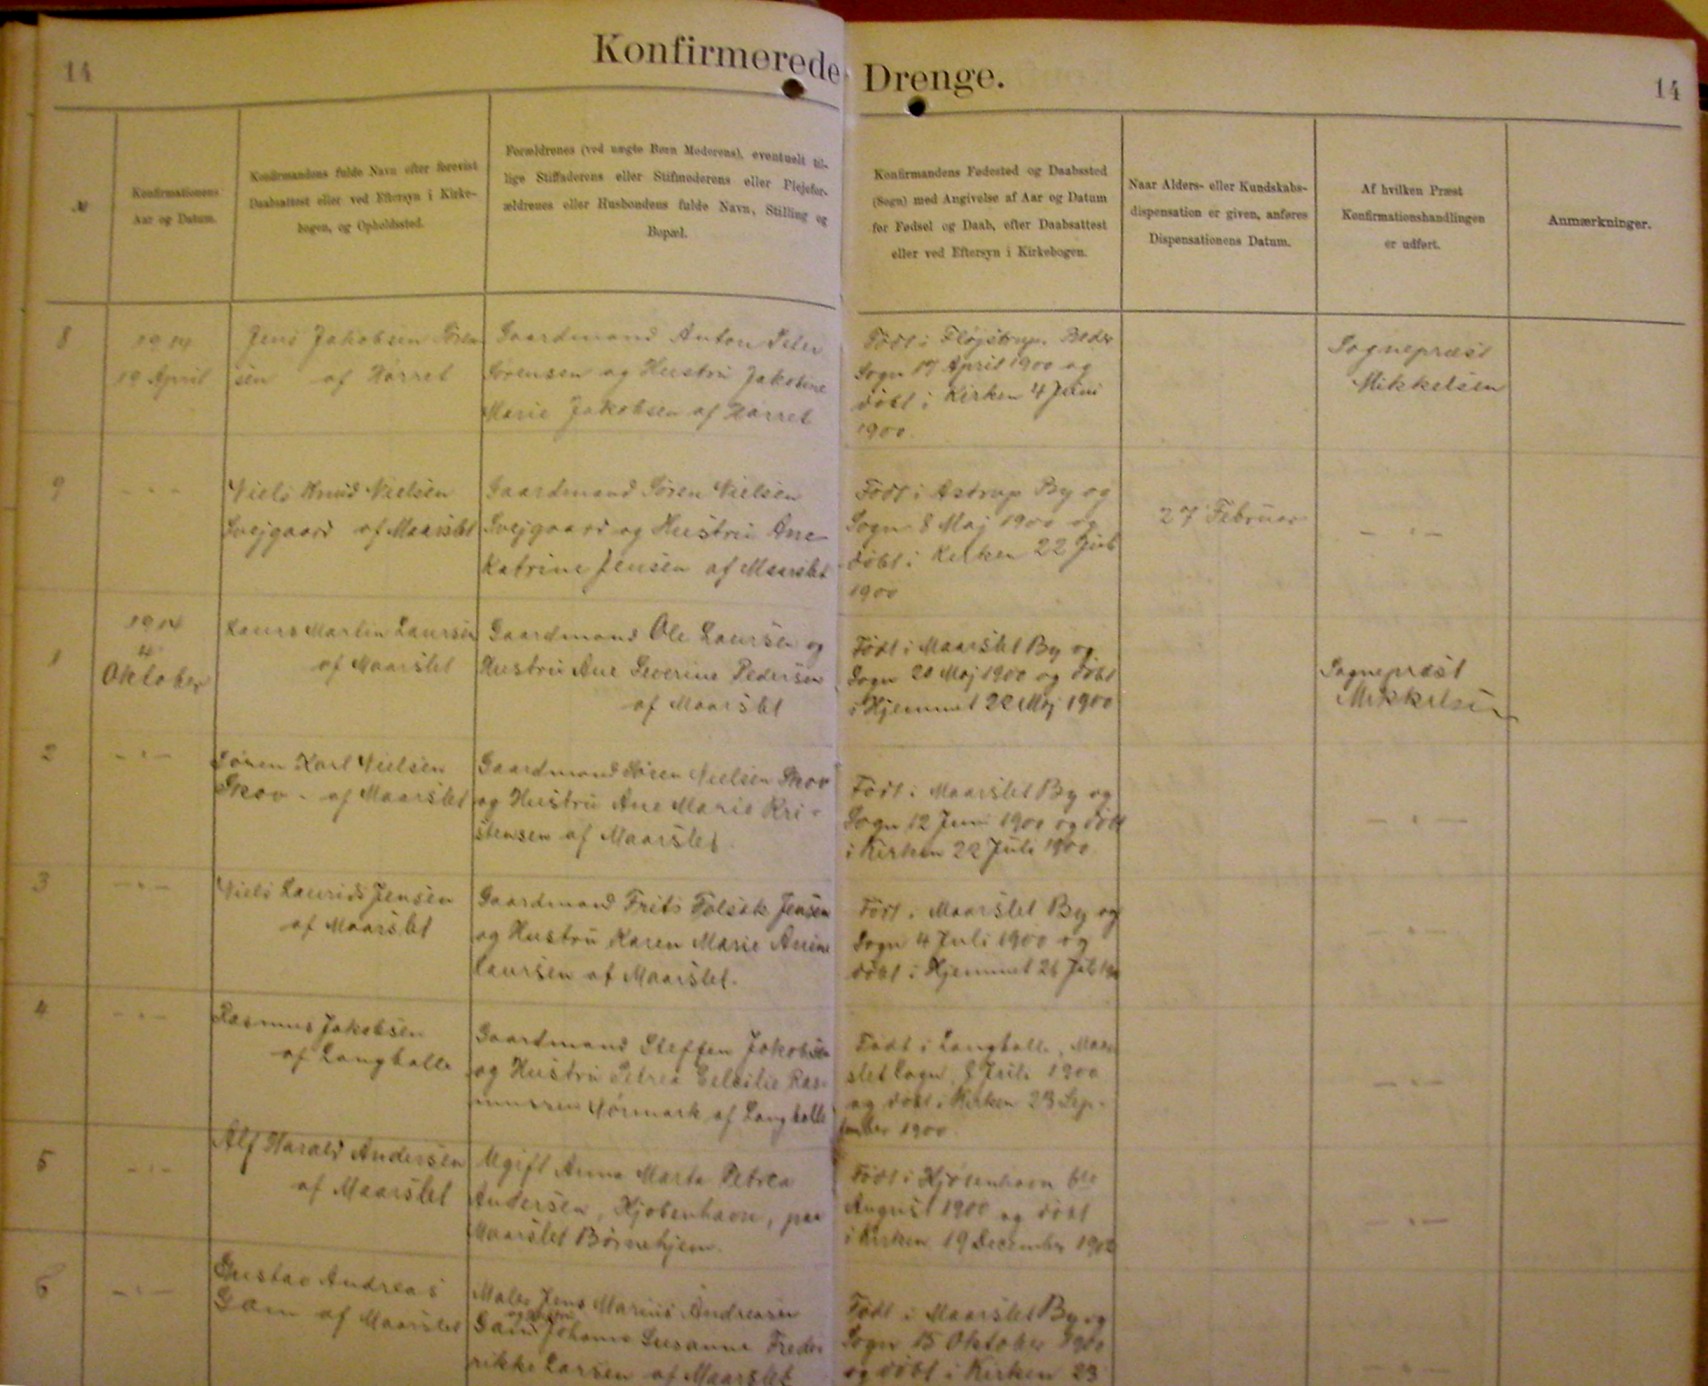 14
Konfirmerede Drenge.
14
№
Konfirmationens
Aar og Datum.
Konfirmandens fulde Navn efter forevist
Daabsattest eller ved Eftersyn i Kirke-
bogen, og Opholdssted.
Forældrenes (ved uægte Børn Moderens), eventuelt til-
lige Stiffaderens eller Stifmoderens eller Plejefor-
ældrenes eller Husbondens fulde Navn, Stilling og
Bopæl.
Konfirmandens Fødested og Daabssted
(Sogn) med Angivelse af Aar og Datum
for Fødsel og Daab, efter Daabsattest
eller ved Eftersyn i Kirkebogen.
Naar Alders- eller Kundskabs-
dispensation er given, anføres
Dispensationens Datum.
Af hvilken Præst
Konfirmationshandlingen
er udført.
Anmærkninger.
8
1914
19 April
Jens Jakobsen Søren
sen af Hørret
Gaardmand Anton Peter
Sørensen og Hustru Jakobine
Marie Jakobsen af Hørret
Født i Fløjstrup, Beder
Sogn 17 April 1900 og
døbt i Kirken 4 Juni
1900.
Sognepræst
Mikkelsen
9
- " -
Niels Knud Nielsen
Svejgaard af Maarslet
Gaardmand Søren Nielsen
Svejgaard og Hustru Ane
Katrine Jensen af Maarslet
Født i Astrup By og
Sogn 8 Maj 1900 og
døbt i Kirken 22 Juli
1900
27 Februar
- " -
1
1914
4
Oktober
Laurs Martin Laursen
af Maarslet
Gaardmand Ole Laursen og
Hustru Ane Severine Pedersen
af Maarslet
Født i Maarslet By og
Sogn 20 Maj 1900 og døbt
i Hjemmet 22 Maj 1900
Sognepræst
Mikkelsen
2
- " -
Søren Karl Nielsen
Skov - af Maarslet
Gaardmand Søren Nielsen Skov
og Hustru Ane Marie Kri-
stensen af Maarslet
Født i Maarslet By og
Sogn 12 Juni 1900 og døbt
i Kirken 22 Juli 1900.
- " -
3
- " -
Niels Laurids Jensen
af Maarslet
Gaardmand Frits Folsak Jensen
og Hustru Karen Marie Anine
Laursen af Maarslet.
Født i Maarslet By og
Sogn 4 Juli 1900 og
døbt i Hjemmet 26 Juli
- " -
4
- " -
Rasmus Jakobsen
af Langballe
Gaardmand Steffen Jakobsen
og Hustru Petrea Ceicilie Ras-
mussen Nørmark af Langballe
Født i Langballe, Maar
slet Sogn, 8 Juli 1900
og døbt i Kirken 23 Sep-
tember 1900
- " -
5
- " -
Alf Harald Andersen
af Maarslet
Ugift Anna Marta Petrea
Andersen, Kjøbenhavn, paa
Maarslet Børnehjem.
Født i Kjøbenhavn
August 1900 og døbt
i Kirken 19 December
- " -
6
- " -
Gustav Andreas
Gam af Maarslet
Maler Jens Marius Andreasen
og Hustru
Gam Johanne Susanne Frede
rikke Larsen af Maarslet
Født i Maarslet By og
Sogn 15 Oktober 1900
og døbt i Kirken 23
- " -